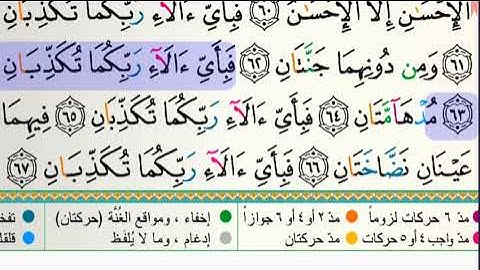 ٱلْإِحْسَٰنِ إِلَّا ٱلْإِحْسَٰنُ ٦٠ فَبِأَىِّ ءَالَآءِ رَبِّكُمَا تُكَذِّبَانِ
٦١ وَمِن دُونِهِمَا جَنَّتَانِ ٦٢ فَبِأَىِّ ءَالَآءِ رَبِّكُمَا تُكَذِّبَانِ
٦٣ مُدْهَآمَّتَانِ ٦٤ فَبِأَىِّ ءَالَآءِ رَبِّكُمَا تُكَذِّبَانِ ٦٥ فِيهِمَا
عَيْنَانِ نَضَّاخَتَانِ ٦٦ فَبِأَىِّ ءَالَآءِ رَبِّكُمَا تُكَذِّبَانِ ٦٧
مدّ ٦ حركات لزوماً مدّ ٢ أو ٤ أو ٦ جوازاً إخفاء ، ومواقع الغُنَّة (حركتان)
مدّ واجب ٤ أو ٥ حركات مدّ حركتان إدغام ، وما لا يُلفَظ